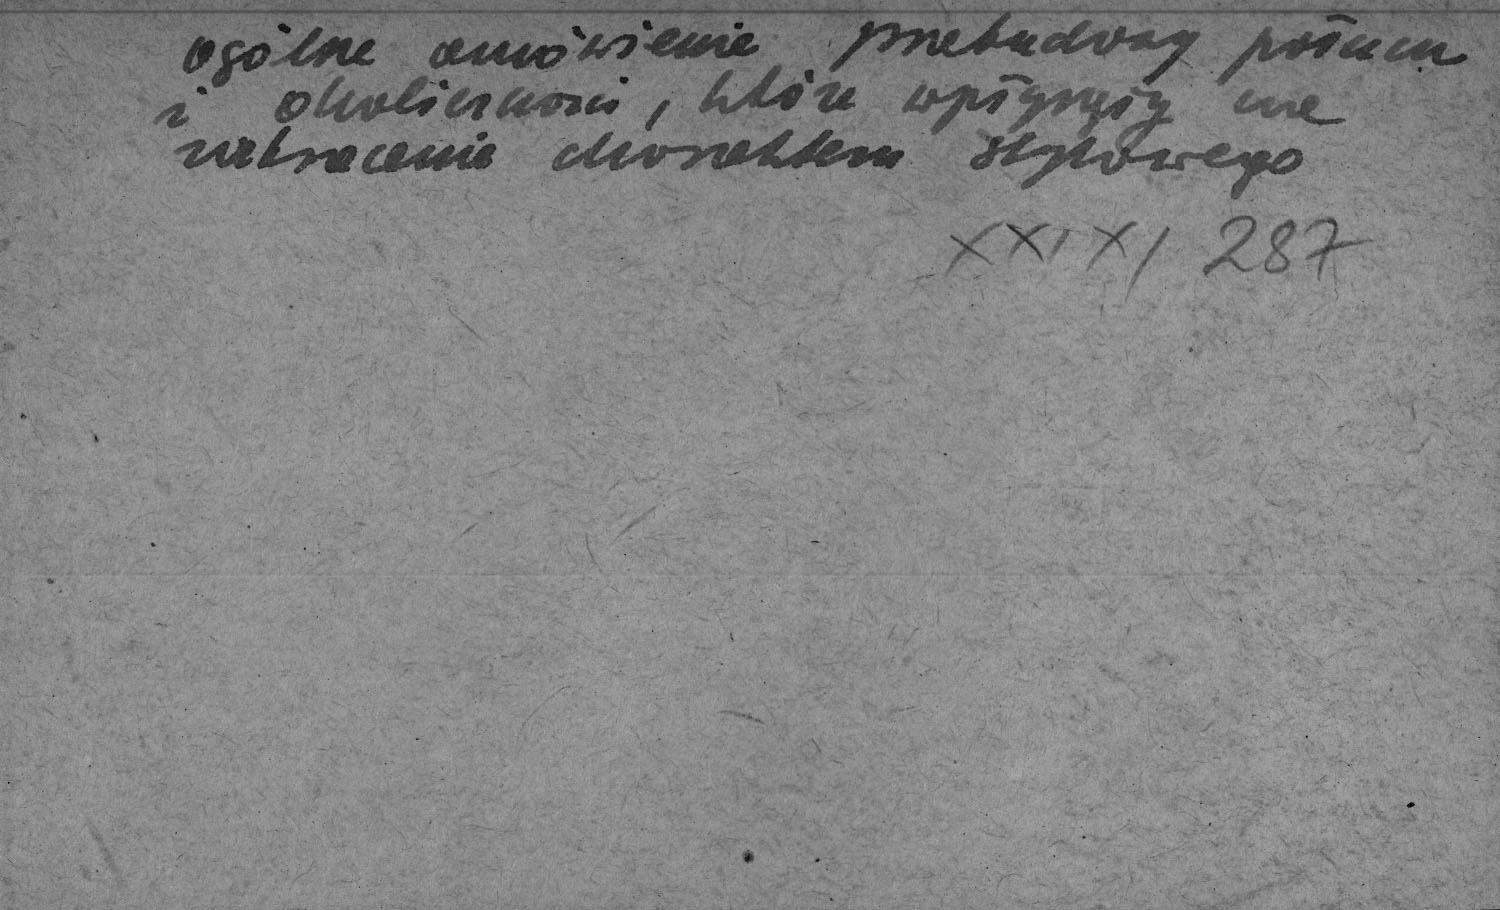 ogólne omówienie przebudowy pałacu
i okoliczności, które wpłynęły na
zatracenie charakteru stylowego
XXIX/287